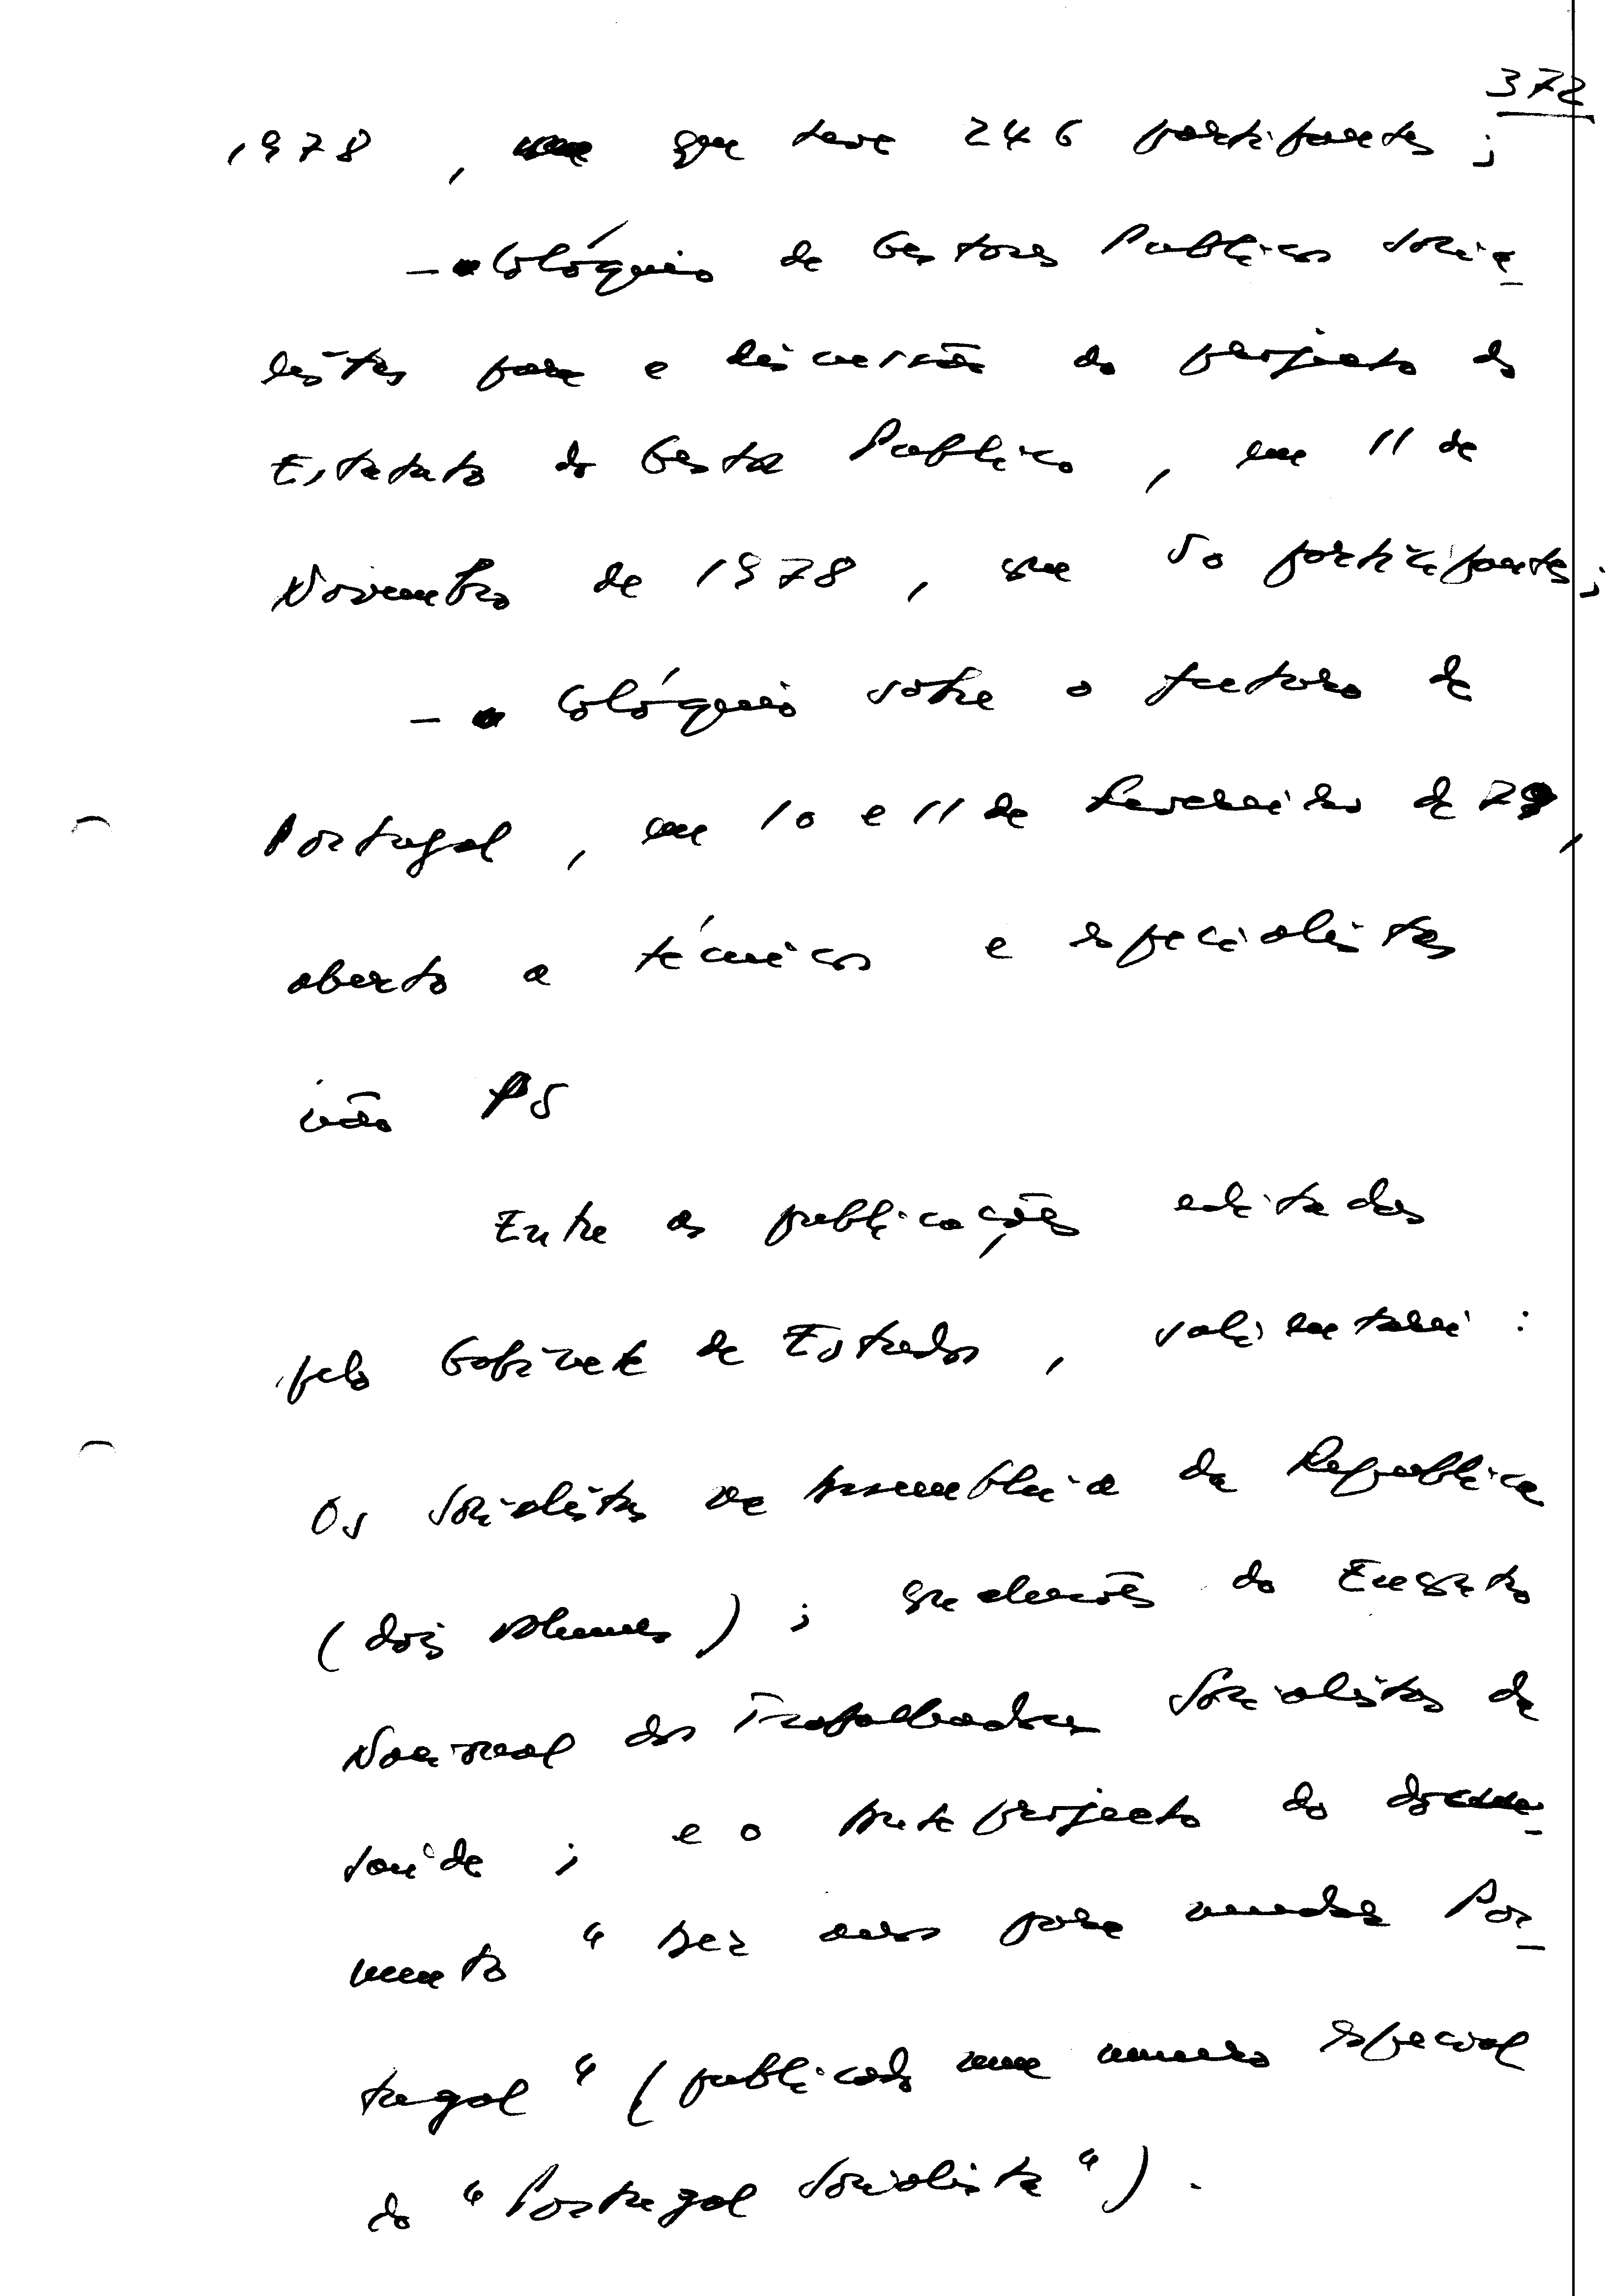 372
1978, que teve 246 participantes;
- Colóquio de Gestores Publicos Socia
listas para a discussão do projecto do
Estatuto do Gestor Publico, em 11 de
Novembro de 1978, com 50 participantes;
- Colóquio sobre o futuro de
Portugal, em 10 e 11 de Fevereiro de 79,
aberto a técnicos e especialistas
não PS
Entre as publicações editadas
pelo Gabinete de Estudos, salientarei:
Os Socialistas na Assembleia da Republica
(dois volumes); do Encontro
Nacional dos Trabalhadores Socialistas da
Saúde; e o Anteprojecto do docu
mento "Dez anos para mudar Por
tugal" (publicado num numero especial
do "Portugal Socialista").